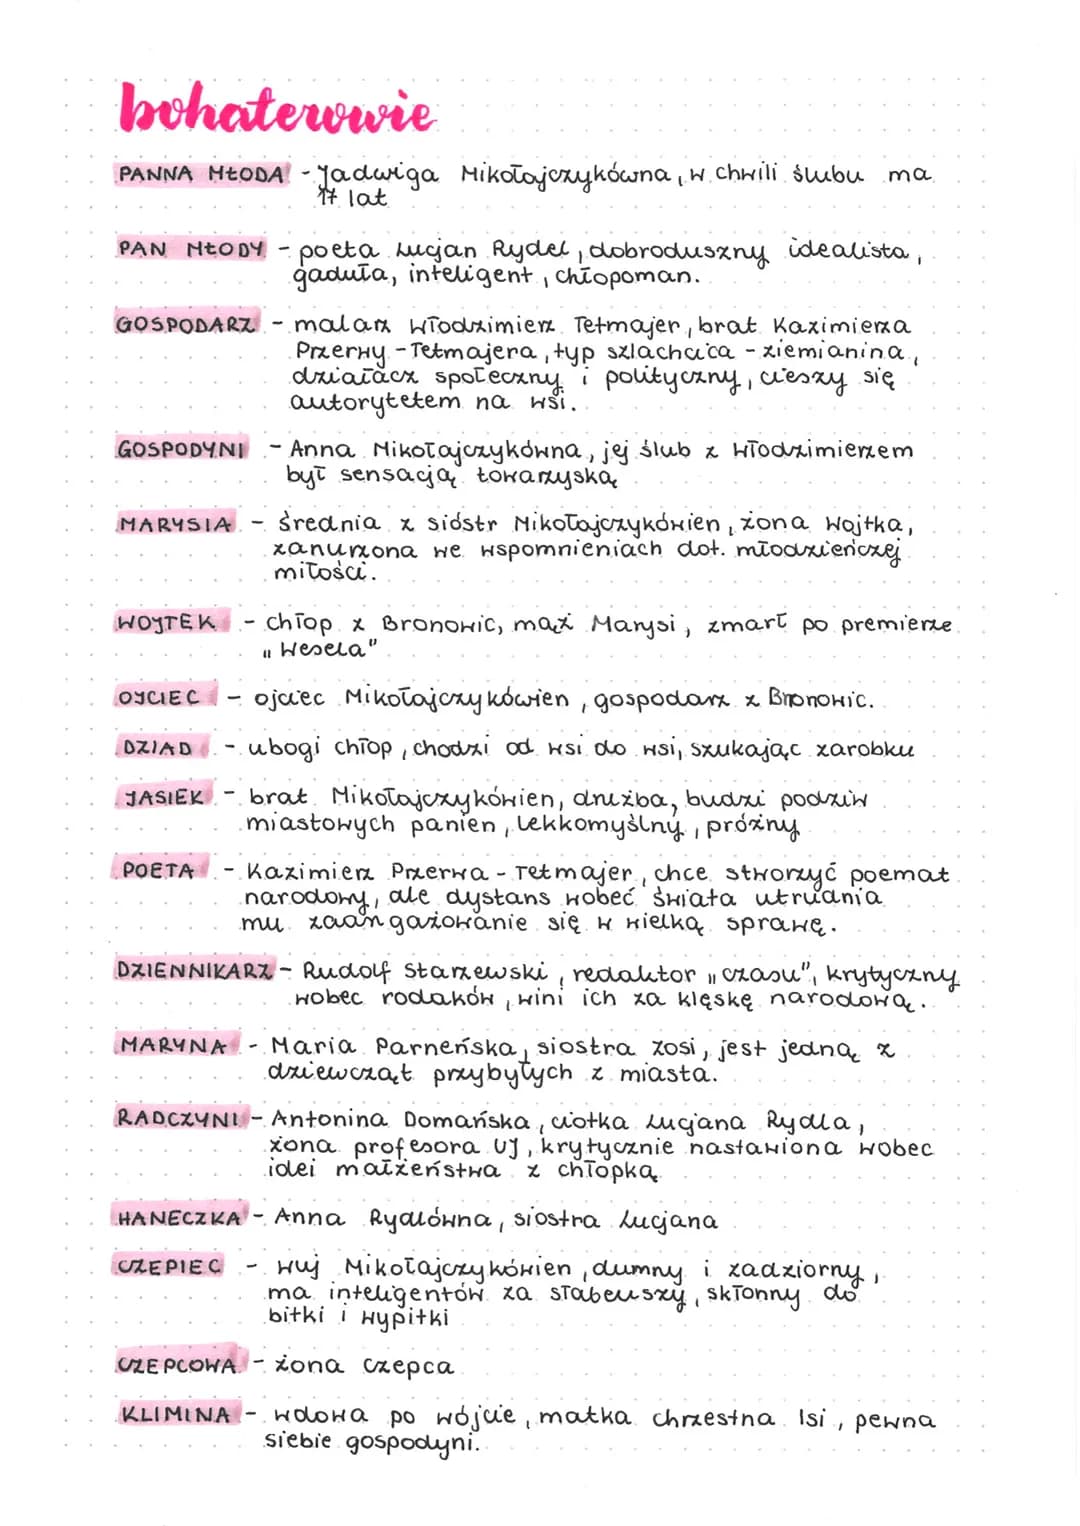 bohaterowie
PANNA MŁODA - Jadwiga Mikołajczykówna, w chwili ślubu ma
17 lat
PAN MŁODY - poeta Lucjan Rydel, dobroduszny idealista,
gaduła, inteligent, chłopoman.
GOSPODARZ - malarz Włodzimierz Tetmajer, brat Kazimierza
Przerwy-Tetmajera, typ szlachcica - ziemianina,
działacz społeczny i polityczny, cieszy się
autorytetem na wsi.
GOSPODYNI - Anna Mikołajczykówna, jej ślub z Włodzimierzem
był sensacją towarzyską
MARYSIA - średnia z sióstr Mikołajczykówien, żona Wojtka,
zanurzona we wspomnieniach dot. młodzieńczej
miłości.
WOJTEK - chłop z Bronowic, mąż Marysi, zmarł po premierze
„Wesela"
OJCIEC - ojciec Mikołajczykówien, gospodarz z Bronowic.
DZIAD - ubogi chłop, chodzi od wsi do wsi, szukając zarobku
JASIEK - brat Mikołajczykówien, drużba, budzi podziw
miastowych panien, lekkomyślny, próżny
POETA - Kazimierz Przerwa-Tetmajer, chce stworzyć poemat
narodowy, ale dystans wobec świata utrudnia
mu zaangażowanie się w wielką sprawę.
DZIENNIKARZ - Rudolf Starzewski, redaktor „czasu", krytyczny
wobec rodaków, wini ich za klęskę narodową.
MARYNA - Maria Parneńska, siostra Zosi, jest jedną z
dziewcząt przybyłych z miasta.
RADCZYNI - Antonina Domańska, ciotka Lucjana Rydla,
żona profesora UJ, krytycznie nastawiona wobec
idei małżeństwa z chłopką
HANECZKA - Anna Rydlówna, siostra Lucjana
CZEPIEC - wuj Mikołajczykówien, dumny i zadziorny,
ma inteligentów za słabeuszy, skłonny do
bitki i wypitki
CZEPCOWA - żona Czepca
KLIMINA - wdowa po wójcie, matka chrzestna Isi, pewna
siebie gospodyni.